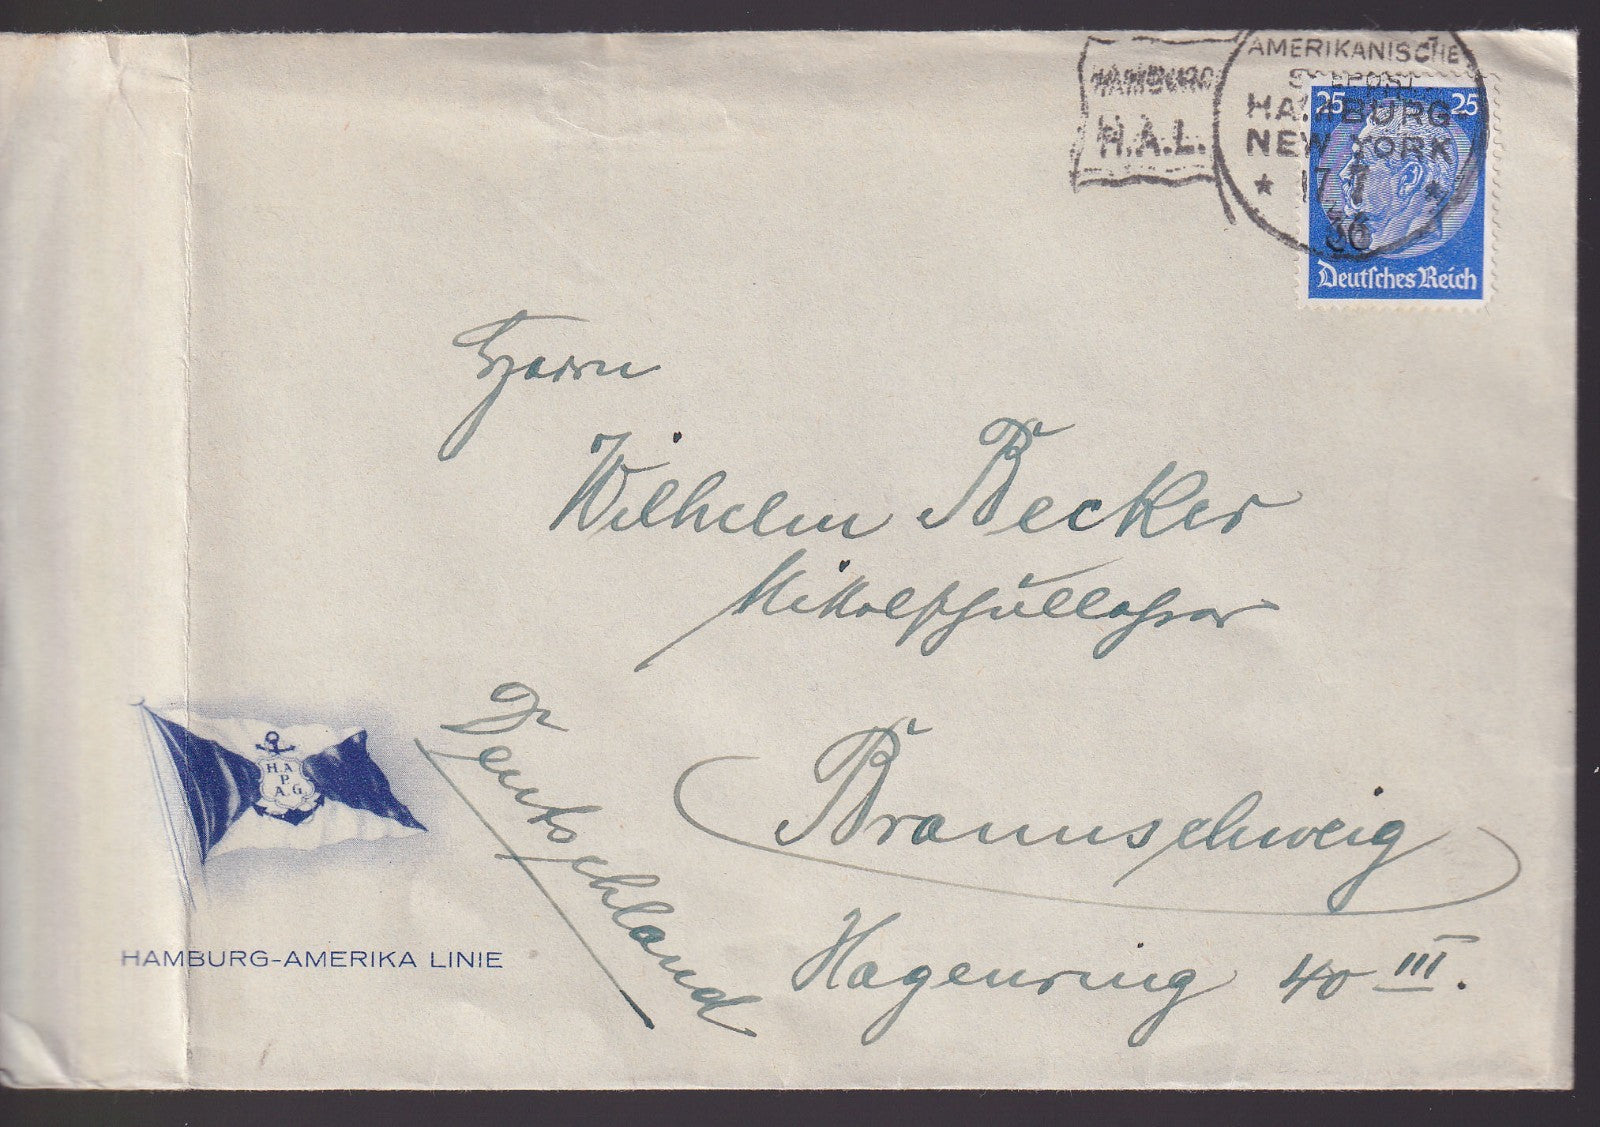 HAMBURG
H.A.L.
AMERIKANISCHE
SEEPOST
HAMBURG-
NEW YORK
17 7
36
25 25
Deutsches Reich
Herrn
Wilhelm Becker
Braunschweig
Hagenring 40 III.
Deutschland
H.A.
P.
A.G.
HAMBURG-AMERIKA LINIE